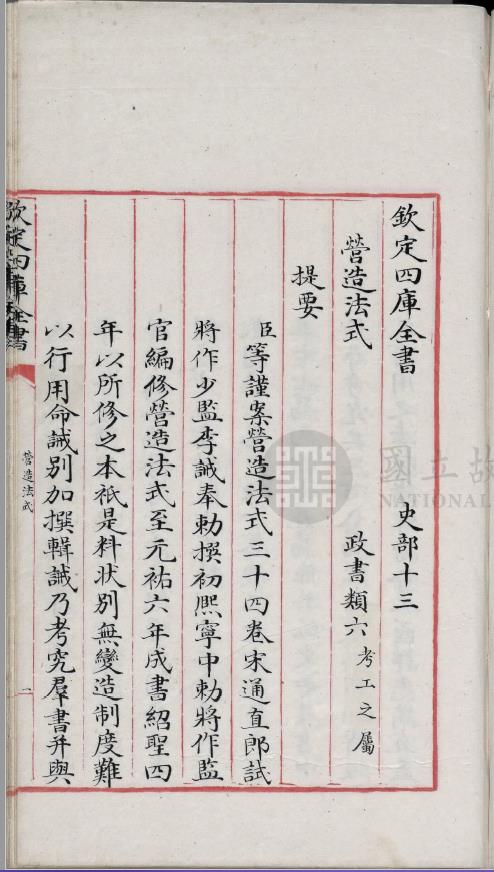 欽定四庫全書　史部十三
營造法式　政書類六考工之屬
提要
臣等謹案營造法式三十四卷宋通直郎試
將作少監李誡奉勅撰初熙寧中勅將作監
官編修營造法式至元祐六年成書紹聖四
年以所修之本秖是料狀別無變造制度難
以行用命誡別加撰輯誡乃考究羣書并與
欽定四庫全書
營造法式
一
國立故
NATIONAL